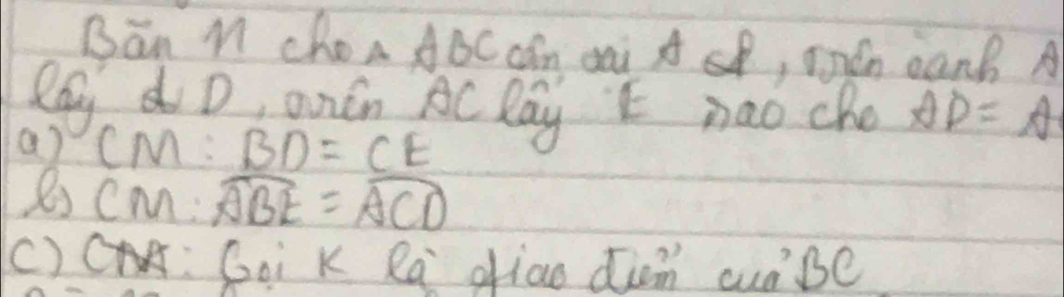 Bài 11 cho Δ ABC cân tại A, trên cạnh A
lấy D, trên AC lấy E sao cho AD = A
a) CM: BD = CE
b) CM: ABE = ACD
c) Gọi K là giao điểm của BC